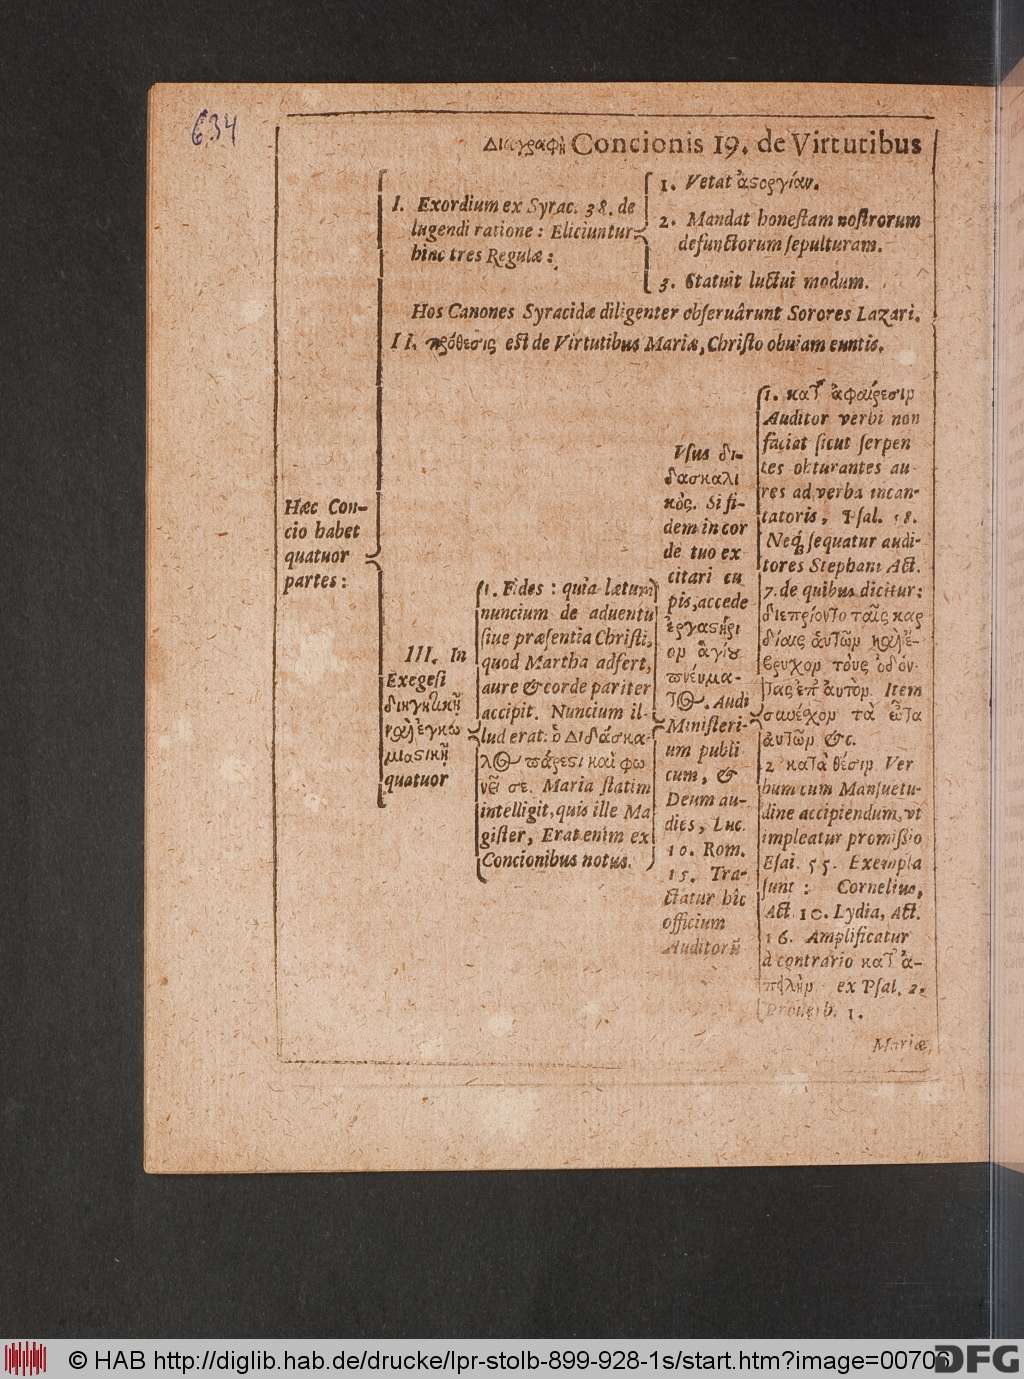 634
Διαγραφὴ Concionis 19. de Virtutibus
I. Exordium ex Syrac. 38. de
lugendi ratione: Eliciuntur
hinc tres Regulæ:
1. Vetat ἀϛοργίαν.
2. Mandat honeſtam noſtrorum
defunctorum ſepulturam.
3. Statuit luctui modum.
Hos Canones Syracidæ diligenter obſeruârunt Sorores Lazari.
II. πρόθεσις eſt de Virtutibus Mariæ, Chriſto obuiam euntis.
Hæc Con-
cio habet
quatuor
partes:
III. In
Exegeſi
διηγητικῇ
καὶ ἐγκω
μιαϛικῇ
quatuor
1. Fides: quia lætum
nuncium de aduentu
ſiue præſentia Chriſti,
quod Martha adfert,
aure & corde pariter
accipit. Nuncium il-
lud erat: ὁ Διδάσκα-
λος πάρεϛι καὶ φω
νεῖ σε. Maria ſtatim
intelligit, quis ille Ma
giſter, Erat enim ex
Concionibus notus.
Vſus δι-
δασκαλι
κός. Si fi-
dem in cor
de tuo ex
citari cu
pis, accede
ἐργαϛήρι
ον ἁγίου
πνεύμα-
τος. Audi
Miniſteri-
um publi
cum, &
Deum au-
dies, Luc.
10. Rom.
15. Tra-
ctatur hîc
officium
Auditorũ
1. κατ᾽ ἀφαίρεσιν
Auditor verbi non
faciat ſicut ſerpen
tes obturantes au-
res ad verba incan-
tatoris, Pſal. 58.
Neq́ ſequatur audi-
tores Stephani Act.
7. de quibus dicitur:
διεπρίοντο ταῖς καρ
δίαις αὐτῶν καὶ ἔ-
βρυχον τοὺς ὀδόν-
τας ἐπ᾽ αὐτὸν. Item
συνέχον τὰ ὦτα
αὐτῶν &c.
2 κατὰ θέσιν. Ver
bum cum Manſuetu-
dine accipiendum, vt
impleatur promiſſio
Eſai. 55. Exempla
ſunt: Cornelius,
Act. 10. Lydia, Act.
16. Amplificatur
à contrario κατ᾽ ἀ-
πειλὴν ex Pſal. 2.
Prouerb. 1.
Mariæ,
© HAB http://diglib.hab.de/drucke/lpr-stolb-899-928-1s/start.htm?image=00706
DFG